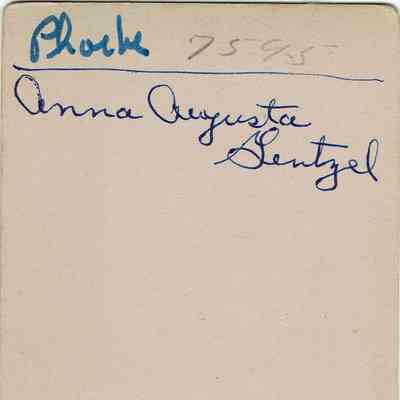 Phoebe 7595
Anna Augusta
Gentzel